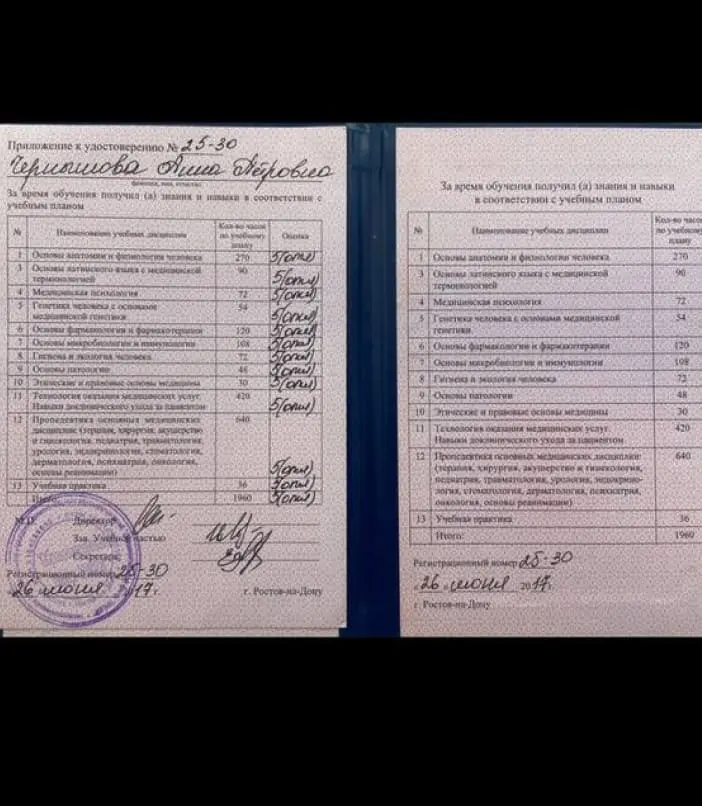 Приложение к удостоверению № 25-30
Чернышова Анна Петровна
фамилия, имя, отчество
За время обучения получил (а) знания и навыки в соответствии с
учебным планом
№ Наименование учебных дисциплин Кол-во часов по учебному плану Оценка
1 Основы анатомии и физиологии человека 270 5(отл)
3 Основы латинского языка с медицинской
терминологией 90 5(отл)
4 Медицинская психология 72 5(отл)
5 Генетика человека с основами
медицинской генетики 54 5(отл)
6 Основы фармакологии и фармакотерапии 120 5(отл)
7 Основы микробиологии и иммунологии 108 5(отл)
8 Гигиена и экология человека 72 5(отл)
9 Основы патологии 48 5(отл)
10 Этические и правовые основы медицины 30 5(отл)
11 Технология оказания медицинских услуг.
Навыки доклинического ухода за пациентом 420 5(отл)
12 Пропедевтика основных медицинских 640
дисциплин (терапия, хирургия, акушерство
и гинекология, педиатрия, травматология,
урология, эндокринология, стоматология,
дерматология, психиатрия, онкология,
основы реанимации) 5(отл)
13 Учебная практика 36 5(отл)
Итого: 1960 5(отл)
М.П. Директор
Зав. Учебной частью
Секретарь
Регистрационный номер 25-30
26 июня 2017г. г. Ростов-на-Дону
За время обучения получил (а) знания и навыки
в соответствии с учебным планом
№ Наименование учебных дисциплин Кол-во часов по учебному плану
1 Основы анатомии и физиологии человека 270
3 Основы латинского языка с медицинской
терминологией 90
4 Медицинская психология 72
5 Генетика человека с основами медицинской
генетики 54
6 Основы фармакологии и фармакотерапии 120
7 Основы микробиологии и иммунологии 108
8 Гигиена и экология человека 72
9 Основы патологии 48
10 Этические и правовые основы медицины 30
11 Технология оказания медицинских услуг.
Навыки доклинического ухода за пациентом 420
12 Пропедевтика основных медицинских дисциплин 640
(терапия, хирургия, акушерство и гинекология,
педиатрия, травматология, урология, эндокрино-
логия, стоматология, дерматология, психиатрия,
онкология, основы реанимации)
13 Учебная практика 36
Итого: 1960
Регистрационный номер 25-30
«26» июня 2017г.
г. Ростов-на-Дону